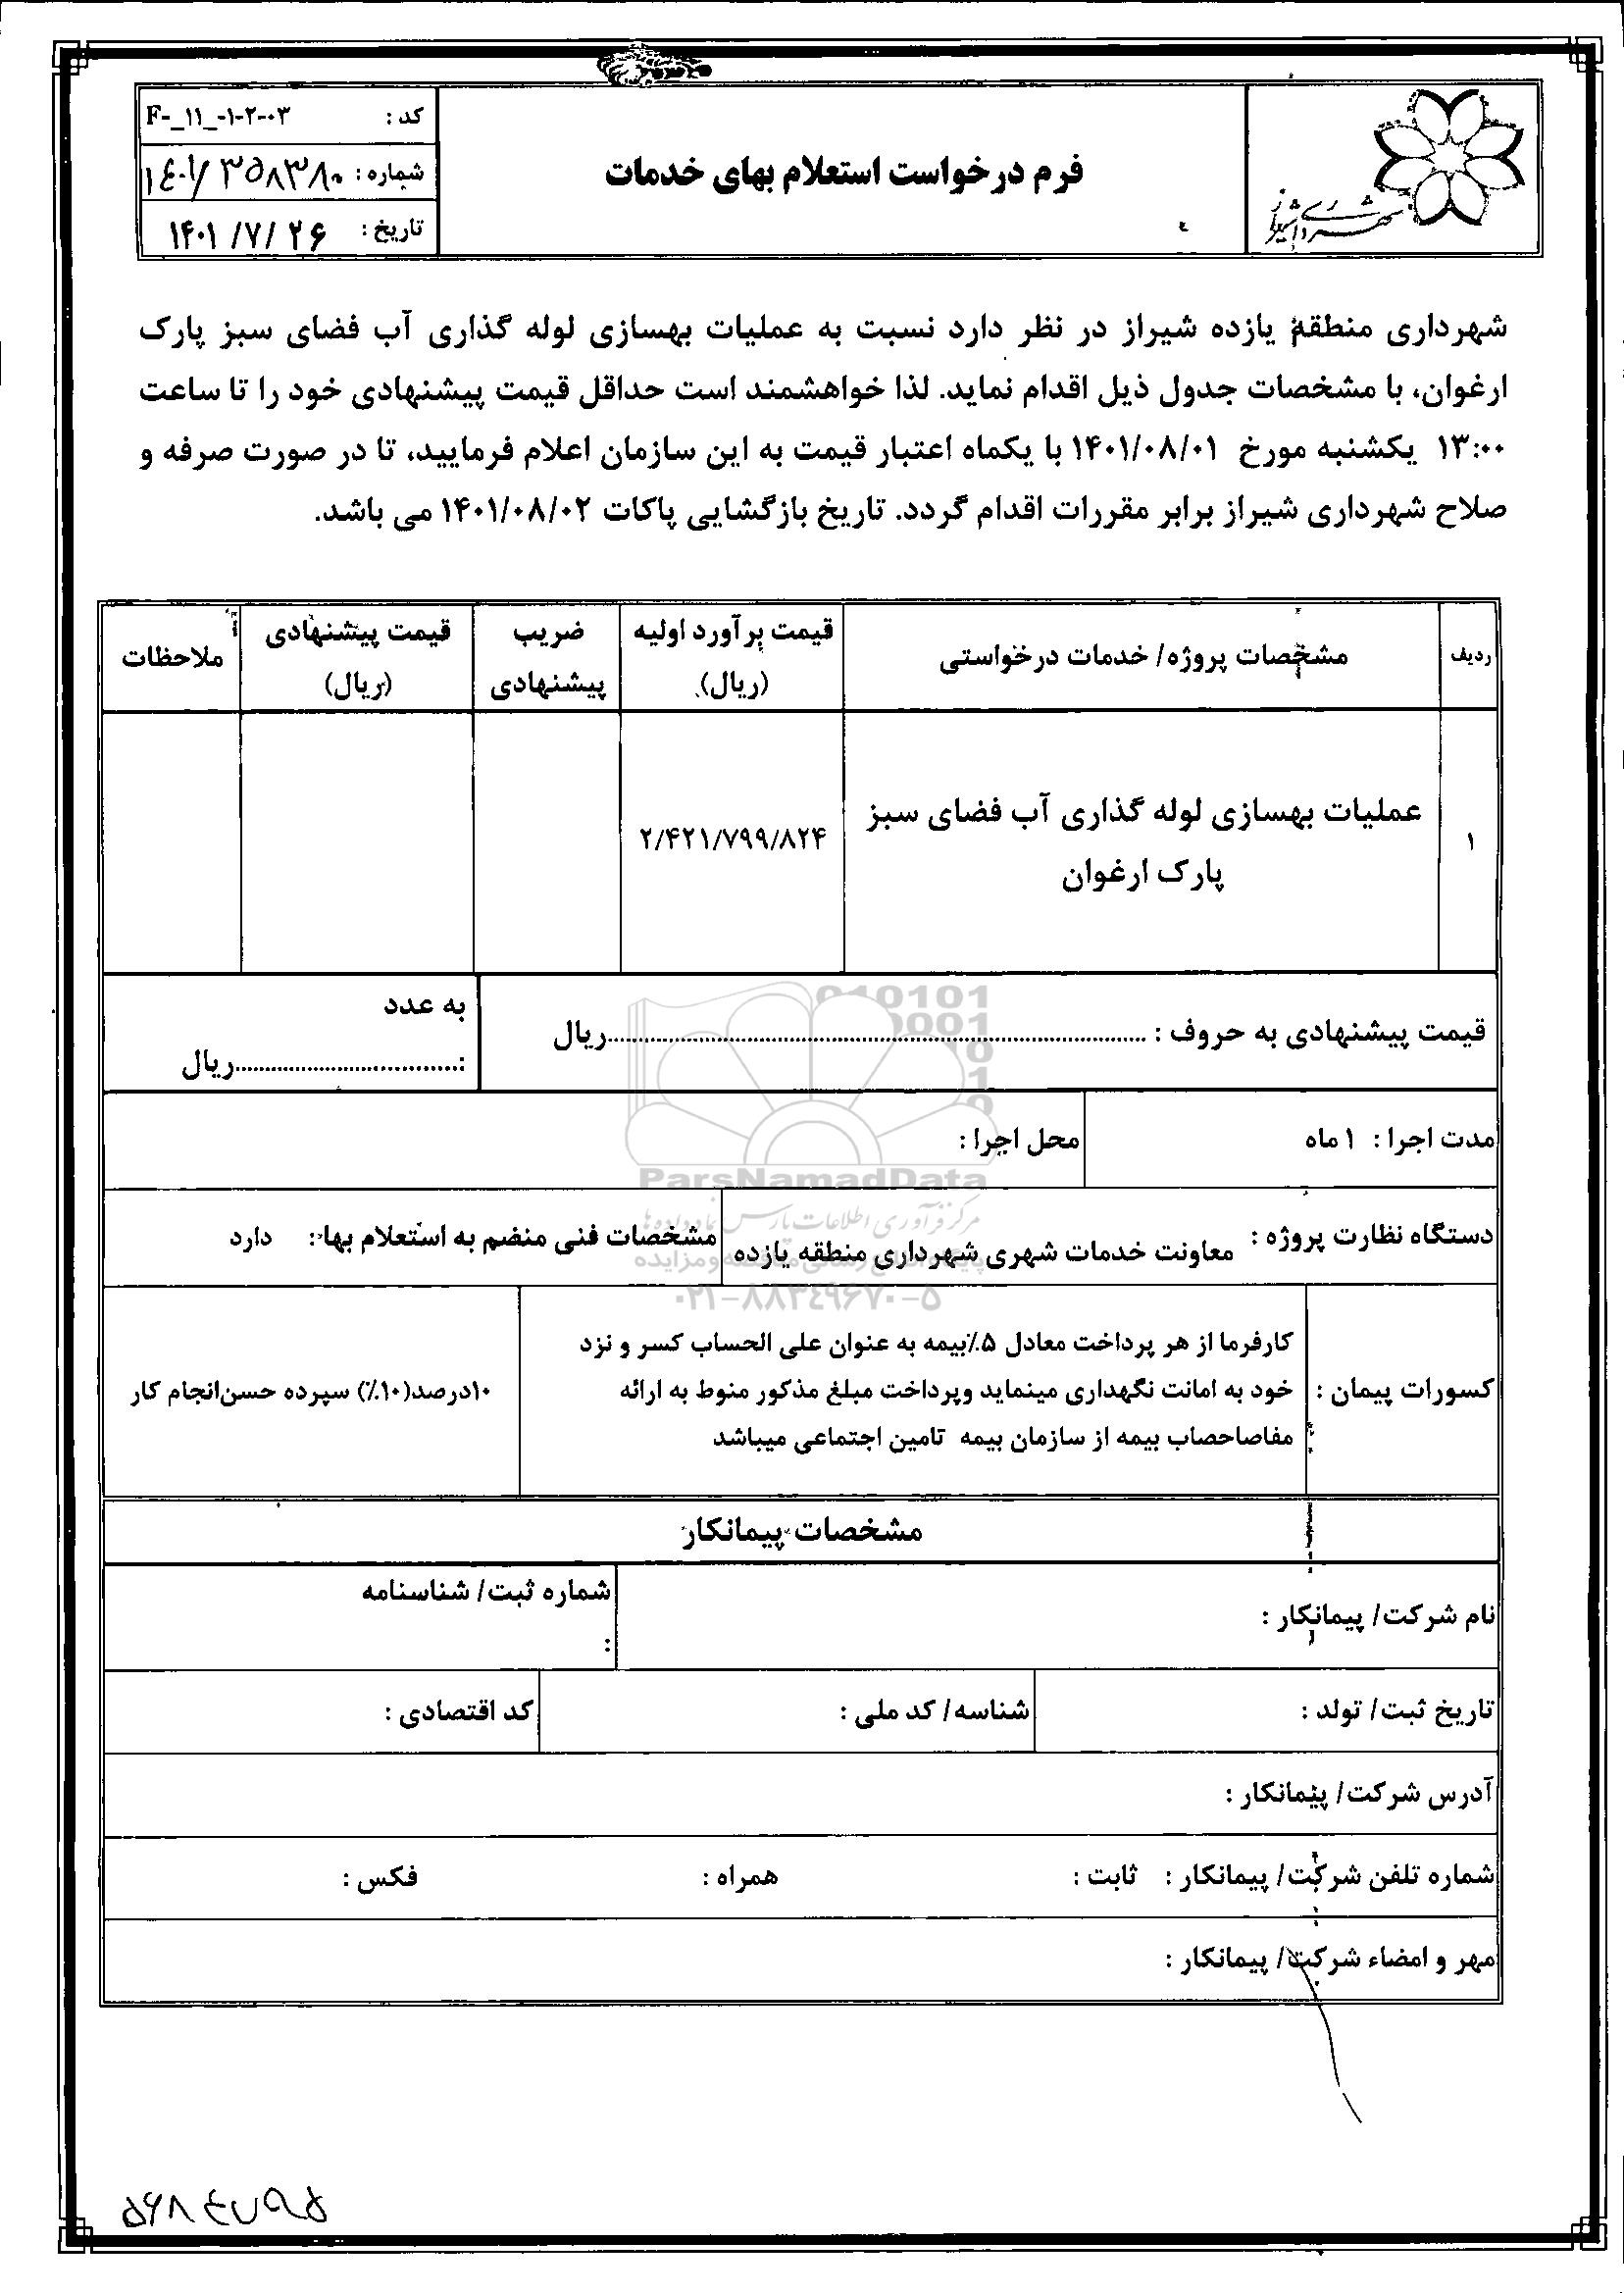 شهرداری شیراز
فرم درخواست استعلام بهای خدمات
کد : F-_۱۱_-۱-۲-۰۳
شماره : ۱۴۰۱/۳۵۸۳۸۰
تاریخ : ۱۴۰۱/۷/۲۶
شهرداری منطقه یازده شیراز در نظر دارد نسبت به عملیات بهسازی لوله گذاری آب فضای سبز پارک
ارغوان، با مشخصات جدول ذیل اقدام نماید. لذا خواهشمند است حداقل قیمت پیشنهادی خود را تا ساعت
۱۳:۰۰ یکشنبه مورخ ۱۴۰۱/۰۸/۰۱ با یکماه اعتبار قیمت به این سازمان اعلام فرمایید، تا در صورت صرفه و
صلاح شهرداری شیراز برابر مقررات اقدام گردد. تاریخ بازگشایی پاکات ۱۴۰۱/۰۸/۰۲ می باشد.
ردیف
مشخصات پروژه/ خدمات درخواستی
قیمت برآورد اولیه
(ریال)
ضریب
پیشنهادی
قیمت پیشنهادی
(ریال)
ملاحظات
۱
عملیات بهسازی لوله گذاری آب فضای سبز
پارک ارغوان
۲/۴۲۱/۷۹۹/۸۲۴
قیمت پیشنهادی به حروف : ..........................................................................ریال
به عدد
:................................ریال
مدت اجرا : ۱ ماه
محل اجرا :
دستگاه نظارت پروژه : معاونت خدمات شهری شهرداری منطقه یازده
مشخصات فنی منضم به استعلام بها: دارد
کسورات پیمان :
کارفرما از هر پرداخت معادل ۵٪بیمه به عنوان علی الحساب کسر و نزد
خود به امانت نگهداری مینماید وپرداخت مبلغ مذکور منوط به ارائه
مفاصاحصاب بیمه از سازمان بیمه تامین اجتماعی میباشد
۱۰درصد(۱۰٪) سپرده حسن‌انجام کار
مشخصات پیمانکار
نام شرکت/ پیمانکار :
شماره ثبت/ شناسنامه
:
تاریخ ثبت/ تولد :
شناسه/ کد ملی :
کد اقتصادی :
آدرس شرکت/ پیمانکار :
شماره تلفن شرکت/ پیمانکار : ثابت : همراه : فکس :
مهر و امضاء شرکت/ پیمانکار :
ParsNamadData
مرکز فرآوری اطلاعات پارس نماد داده ها
۰۲۱-۸۸۳۴۹۶۷۰-۵